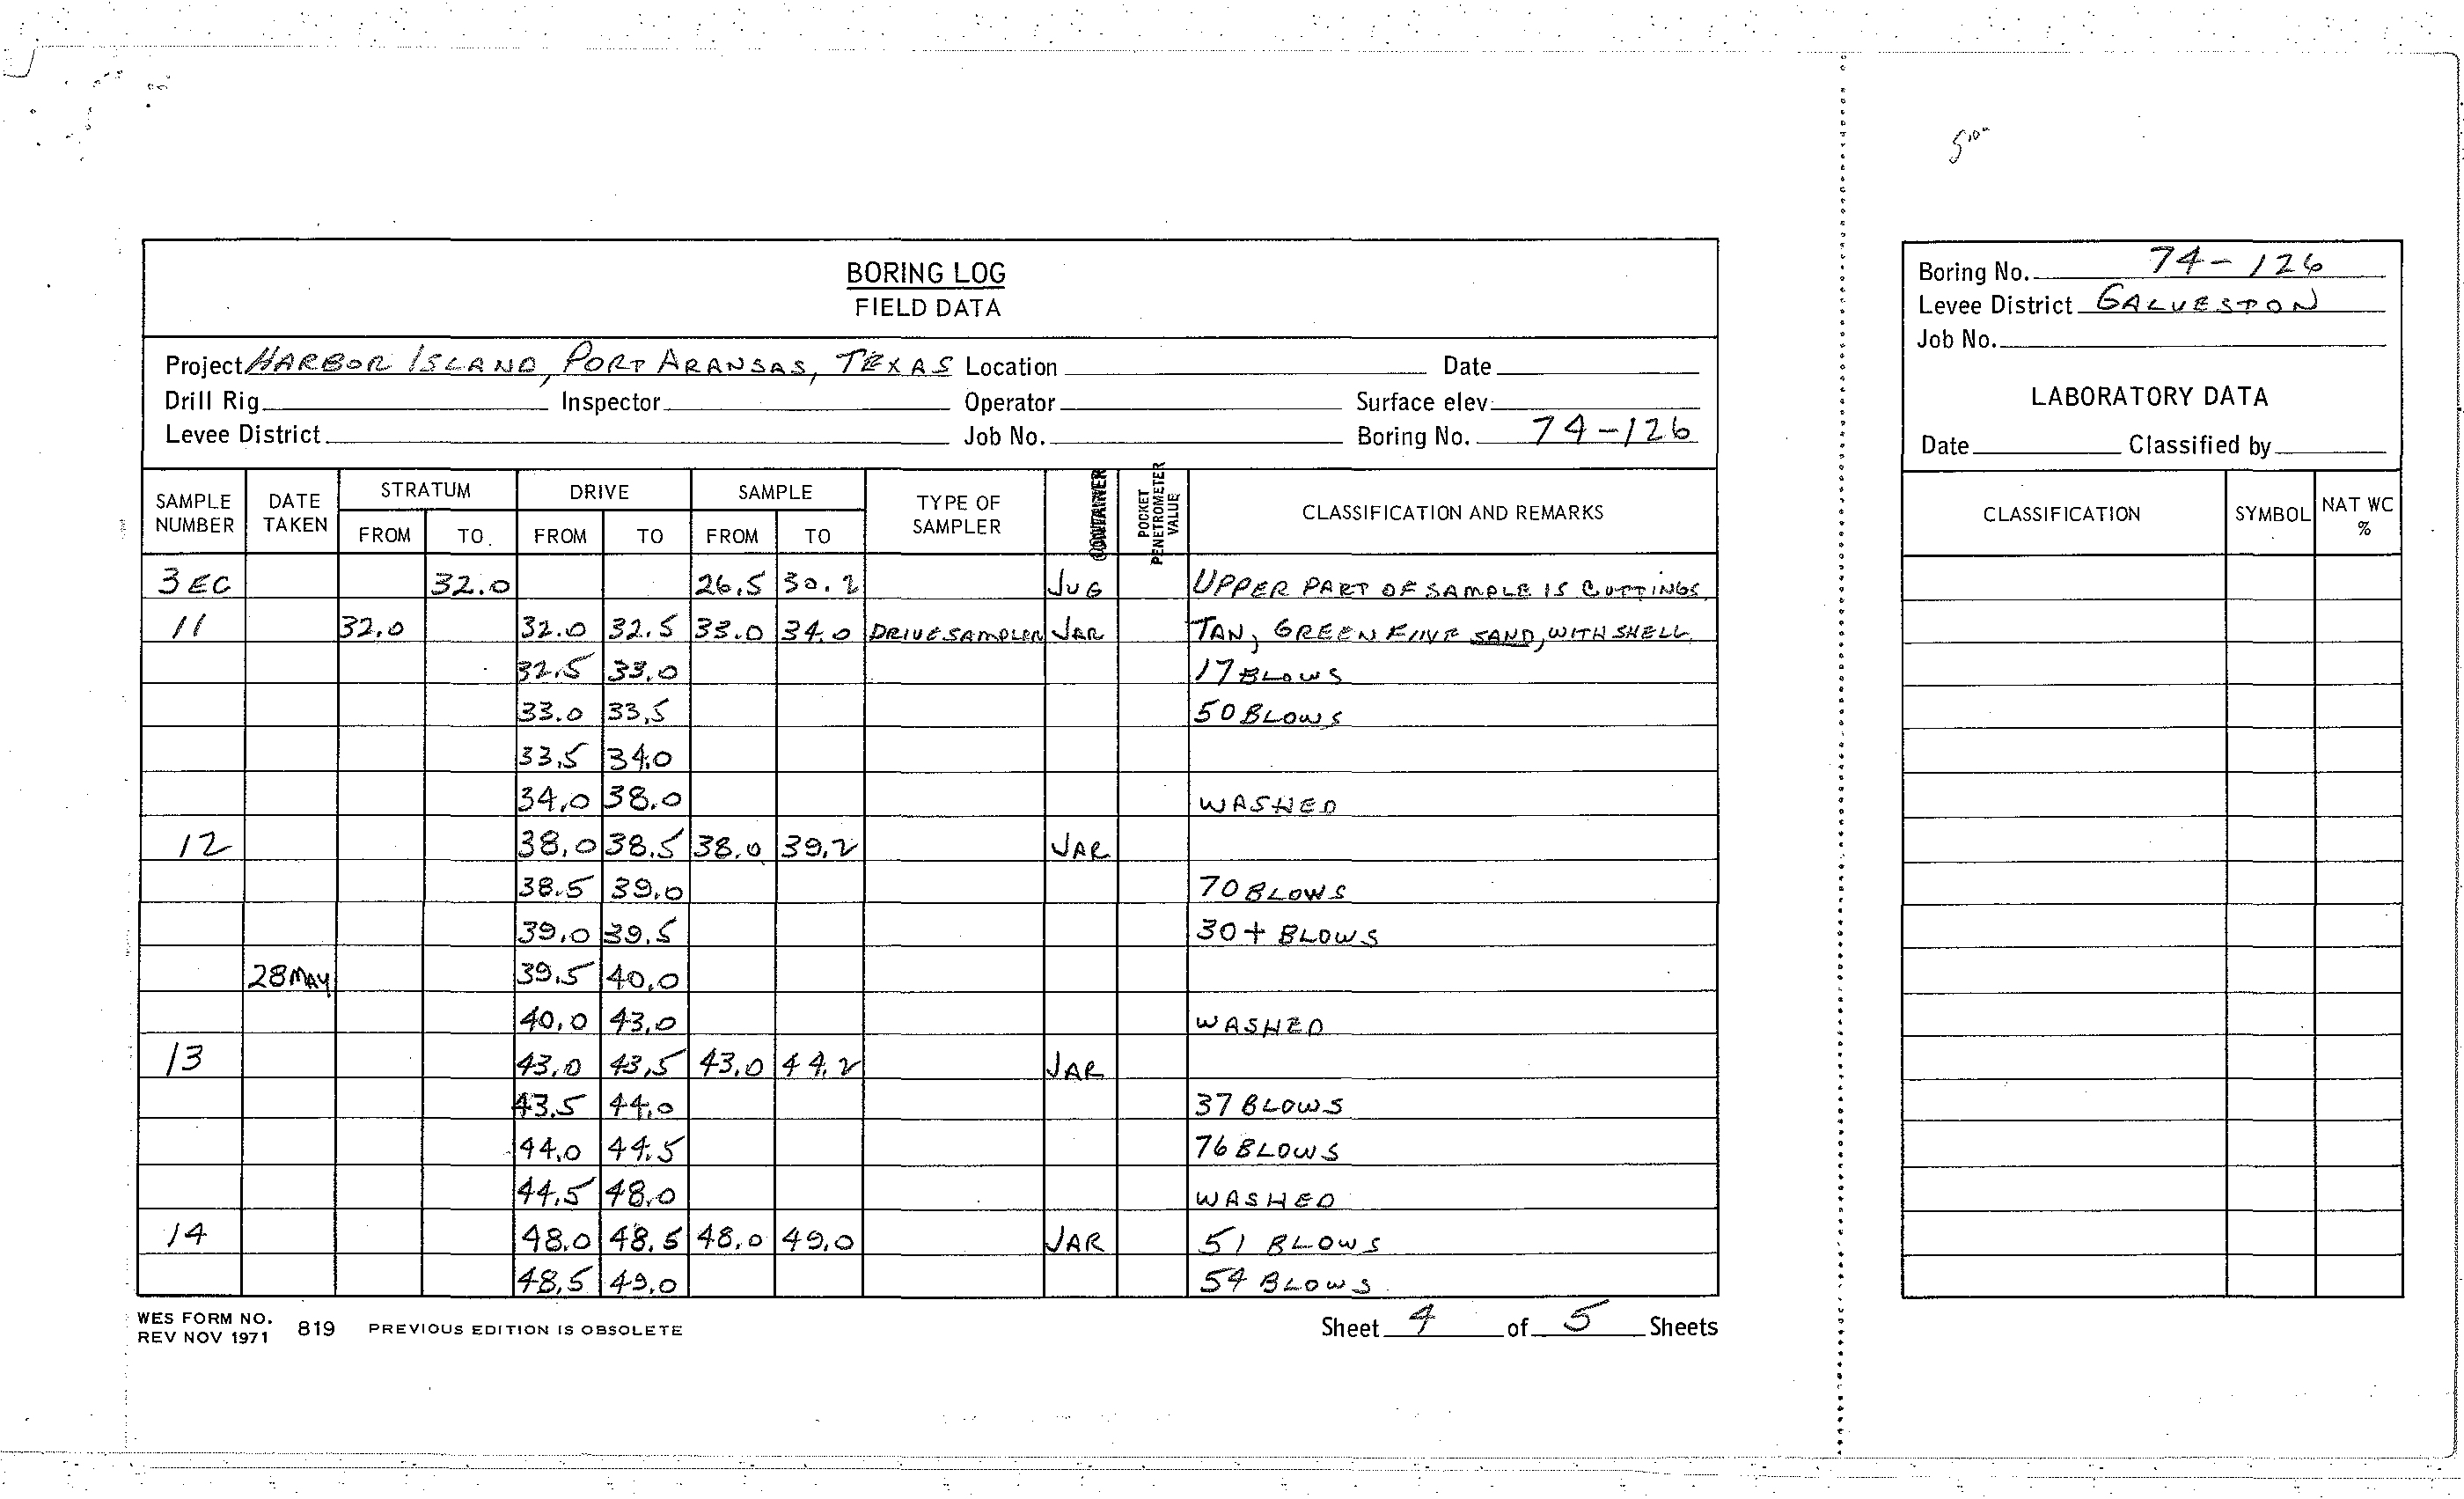 510"
BORING LOG
FIELD DATA
Project HARBOR ISLAND, PORT ARANSAS, TEXAS Location Date
Drill Rig Inspector Operator Surface elev.
Levee District Job No. Boring No. 74-126
SAMPLE NUMBER DATE TAKEN STRATUM DRIVE SAMPLE TYPE OF SAMPLER CONTAINER POCKET PENETROMETER VALUE CLASSIFICATION AND REMARKS
FROM TO FROM TO FROM TO
3EC 32.0 26.5 30.2 JUG UPPER PART OF SAMPLE IS CUTTINGS.
11 32.0 32.0 32.5 33.0 34.0 DRIVE SAMPLER JAR TAN, GREEN FINE SAND, WITH SHELL.
32.5 33.0 17 BLOWS
33.0 33.5 50 BLOWS
33.5 34.0
34.0 38.0 WASHED
12 38.0 38.5 38.0 39.2 JAR
38.5 39.0 70 BLOWS
39.0 39.5 30+ BLOWS
28 MAY 39.5 40.0
40.0 43.0 WASHED
13 43.0 43.5 43.0 44.2 JAR
43.5 44.0 37 BLOWS
44.0 44.5 76 BLOWS
44.5 48.0 WASHED
14 48.0 48.5 48.0 49.0 JAR 51 BLOWS
48.5 49.0 54 BLOWS
WES FORM NO. 819 PREVIOUS EDITION IS OBSOLETE
REV NOV 1971
Sheet 4 of 5 Sheets
Boring No. 74-126
Levee District GALVESTON
Job No.
LABORATORY DATA
Date Classified by
CLASSIFICATION SYMBOL NAT WC %